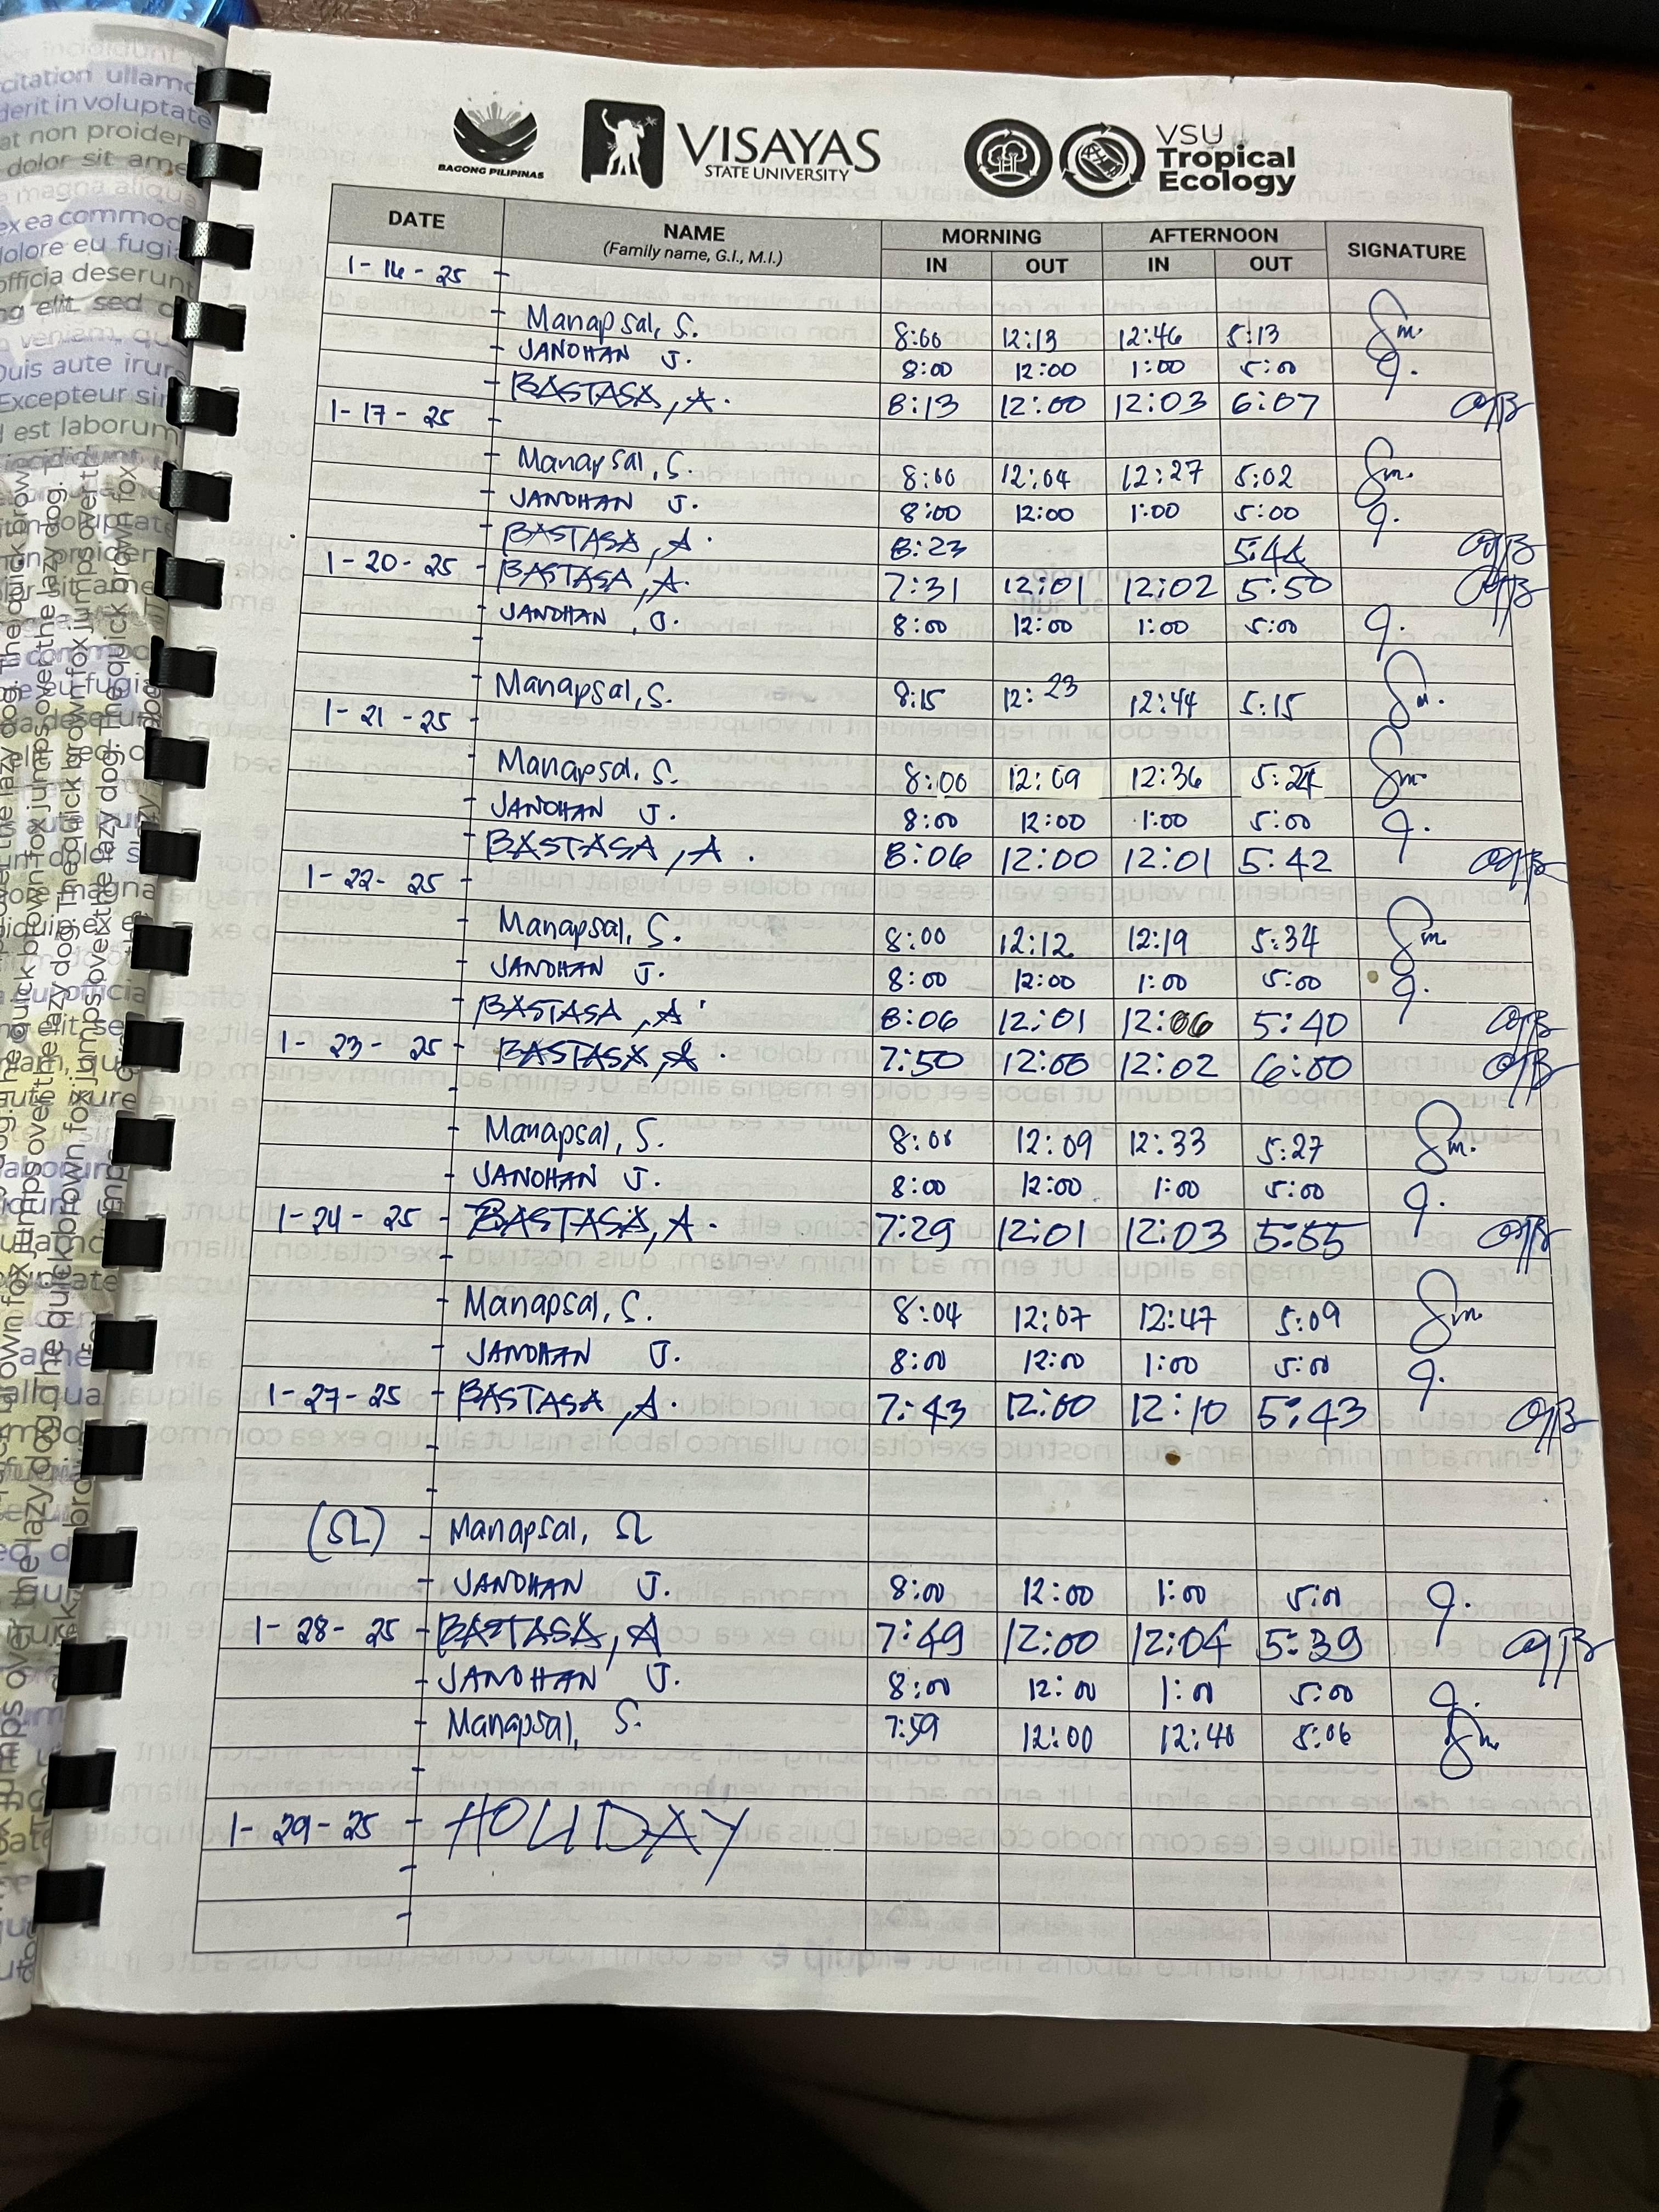 BAGONG PILIPINAS
VISAYAS
STATE UNIVERSITY
VSU
Tropical
Ecology
DATE NAME MORNING AFTERNOON SIGNATURE
(Family name, G.I., M.I.) IN OUT IN OUT
1-16-25 -
- Manapsal, S. 8:00 12:13 12:46 5:13 Sm.
- JANOHAN J. 8:00 12:00 1:00 5:00
- BASTASA, A. 8:13 12:00 12:03 6:07
1-17-25 -
- Manapsal, S. 8:00 12:04 12:27 5:02 Sm.
- JANOHAN J. 8:00 12:00 1:00 5:00
- BASTASA, A. 8:23 5:44
1-20-25 - BASTASA, A. 7:31 12:01 12:02 5:50
- JANOHAN, J. 8:00 12:00 1:00 5:00
-
Manapsal, S. 8:15 12:23 12:44 5:15 Sm.
1-21-25 -
- Manapsal, S. 8:00 12:09 12:36 5:24 Sm.
- JANOHAN J. 8:00 12:00 1:00 5:00
- BASTASA, A. 8:06 12:00 12:01 5:42
1-22-25 -
- Manapsal, S. 8:00 12:12 12:19 5:34 Sm.
- JANOHAN J. 8:00 12:00 1:00 5:00
- BASTASA, A 8:06 12:01 12:06 5:40
1-23-25 - BASTASA, A. 7:50 12:00 12:02 6:00
-
- Manapsal, S. 12:09 12:33 5:27 Sm.
- JANOHAN J. 8:00 12:00 1:00 5:00
1-24-25 - BASTASA, A. 7:29 12:01 12:03 5:55
-
- Manapsal, S. 8:04 12:07 12:47 5:09 Sm.
- JANOHAN J. 8:00 12:00 1:00 5:00
1-27-25 - BASTASA, A. 7:43 12:00 12:10 5:43
-
-
(SL) - Manapsal, SL
- JANOHAN J. 8:00 12:00 1:00 5:00
1-28-25 - BASTASA, A 7:49 12:00 12:04 5:39
- JANOHAN J. 8:00 12:00 1:00 5:00
- Manapsal, S. 7:59 12:00 12:40 5:06 Sm.
-
1-29-25 - HOLIDAY
-
-